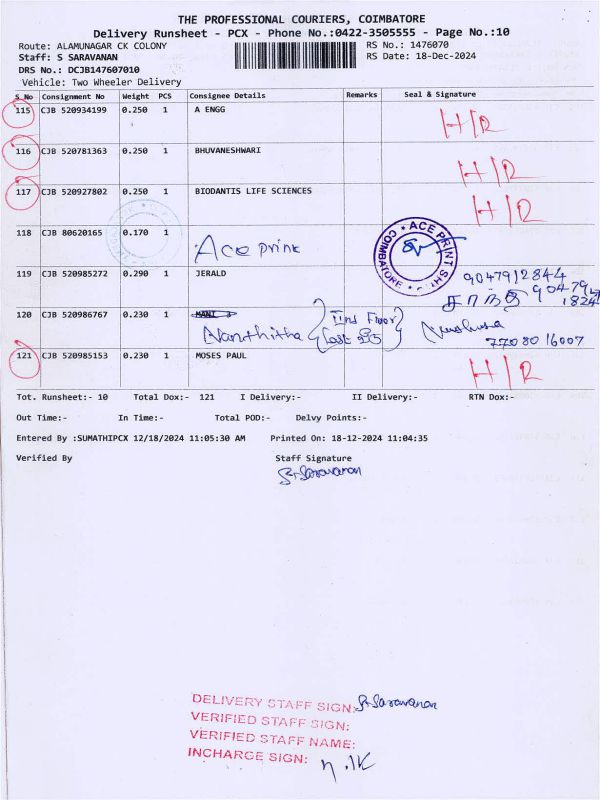 THE PROFESSIONAL COURIERS, COIMBATORE
Delivery Runsheet - PCX - Phone No.:0422-3505555 - Page No.:10
Route: ALAMUNAGAR CK COLONY RS No.: 1476070
Staff: S SARAVANAN RS Date: 18-Dec-2024
DRS No.: DCJB147607010
Vehicle: Two Wheeler Delivery
S.No Consignment No Weight PCS Consignee Details Remarks Seal & Signature
115 CJB 520934199 0.250 1 A ENGG H/R
116 CJB 520781363 0.250 1 BHUVANESHWARI H/R
117 CJB 520927802 0.250 1 BIODANTIS LIFE SCIENCES H/R
118 CJB 80620165 0.170 1 Ace Print ACE PRINT COIMBATORE
119 CJB 520985272 0.290 1 JERALD 9047912844
120 CJB 520986767 0.230 1 MANI Nanthitha IInd Floor 7708016007
121 CJB 520985153 0.230 1 MOSES PAUL H/R
Tot. Runsheet:- 10 Total Dox:- 121 I Delivery:- II Delivery:- RTN Dox:-
Out Time:- In Time:- Total POD:- Delvy Points:-
Entered By :SUMATHIPCX 12/18/2024 11:05:30 AM Printed On: 18-12-2024 11:04:35
Verified By Staff Signature
S. Saravanan
DELIVERY STAFF SIGN: S. Saravanan
VERIFIED STAFF SIGN:
VERIFIED STAFF NAME:
INCHARGE SIGN: